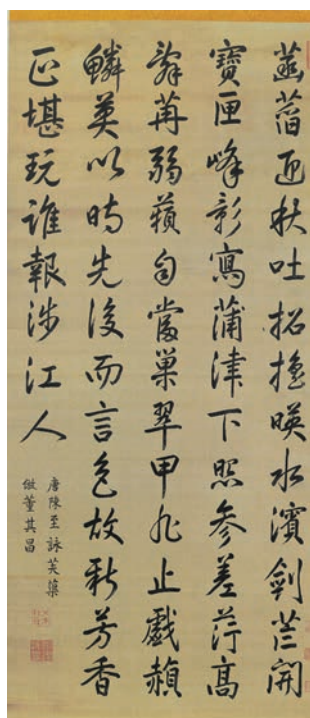 菡萏迎秋吐招搖暎水濱劍芒開
寶匣峰影寫蒲津下照參差荇高
辭苒弱蘋自當巢翠甲非止戲赬
鱗莫以時先後而言色故新芳香
正堪玩誰報涉江人
唐陳至詠芙蕖
倣董其昌